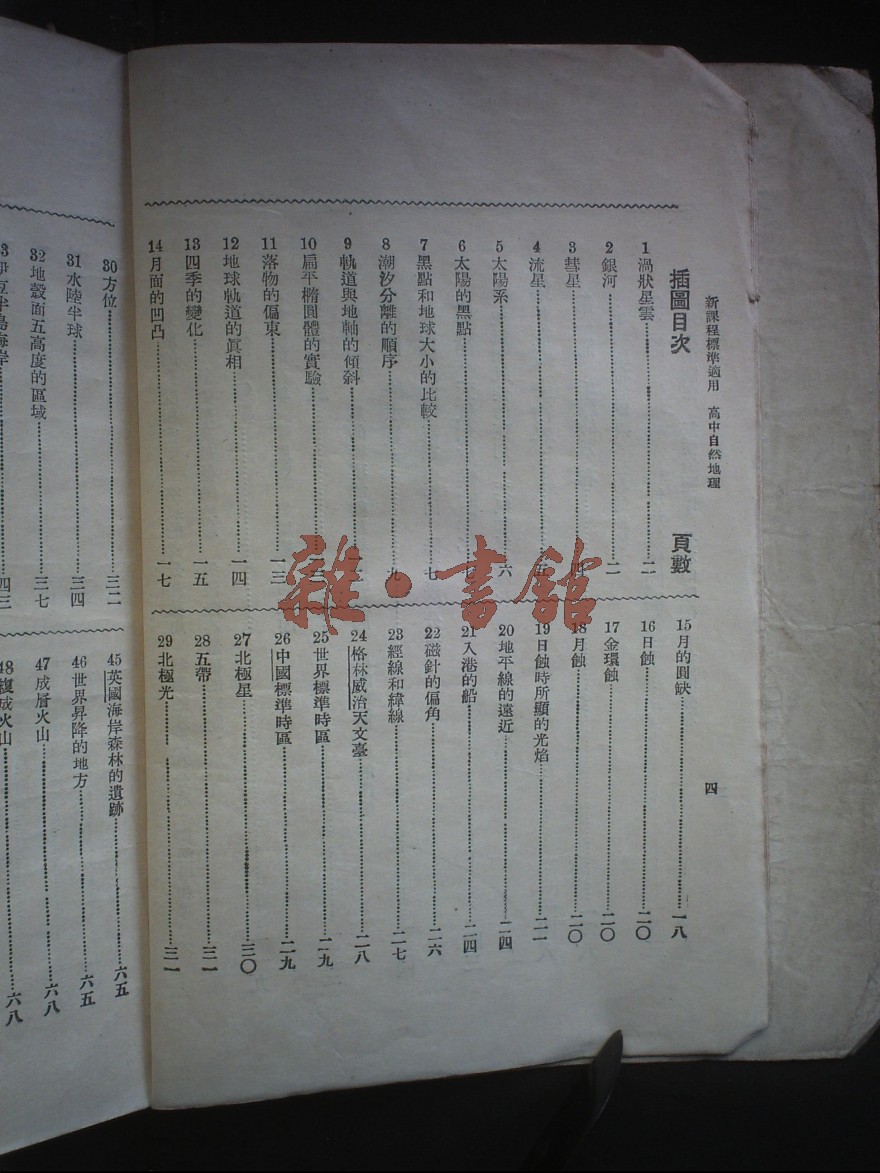 新課程標準適用　高中自然地理
四
插圖目次
頁數
1 渦狀星雲……二
2 銀河……二
3 彗星
4 流星……五
5 太陽系……六
6 太陽的黑點……七
7 黑點和地球大小的比較……七
8 潮汐分離的順序……九
9 軌道與地軸的傾斜
10 扁平橢圓體的實驗
11 落物的偏東……一三
12 地球軌道的真相……一四
13 四季的變化……一五
14 月面的凹凸……一七
15 月的圓缺……一八
16 日蝕……二〇
17 金環蝕……二〇
18 月蝕……二〇
19 日蝕時所顯的光焰……二二
20 地平線的遠近……二四
21 入港的船……二四
22 磁針的偏角……二六
23 經線和緯線……二七
24 格林威治天文臺……二八
25 世界標準時區……二九
26 中國標準時區……二九
27 北極星……三〇
28 五帶……三一
29 北極光……三一
30 方位……三二
31 水陸半球……三四
32 地殼面五高度的區域……三七
3 伊豆半島海岸……四三
45 英國海岸森林的遺跡……六五
46 世界昇降的地方……六五
47 成層火山……六八
48 複成火山……六八
雜·書館